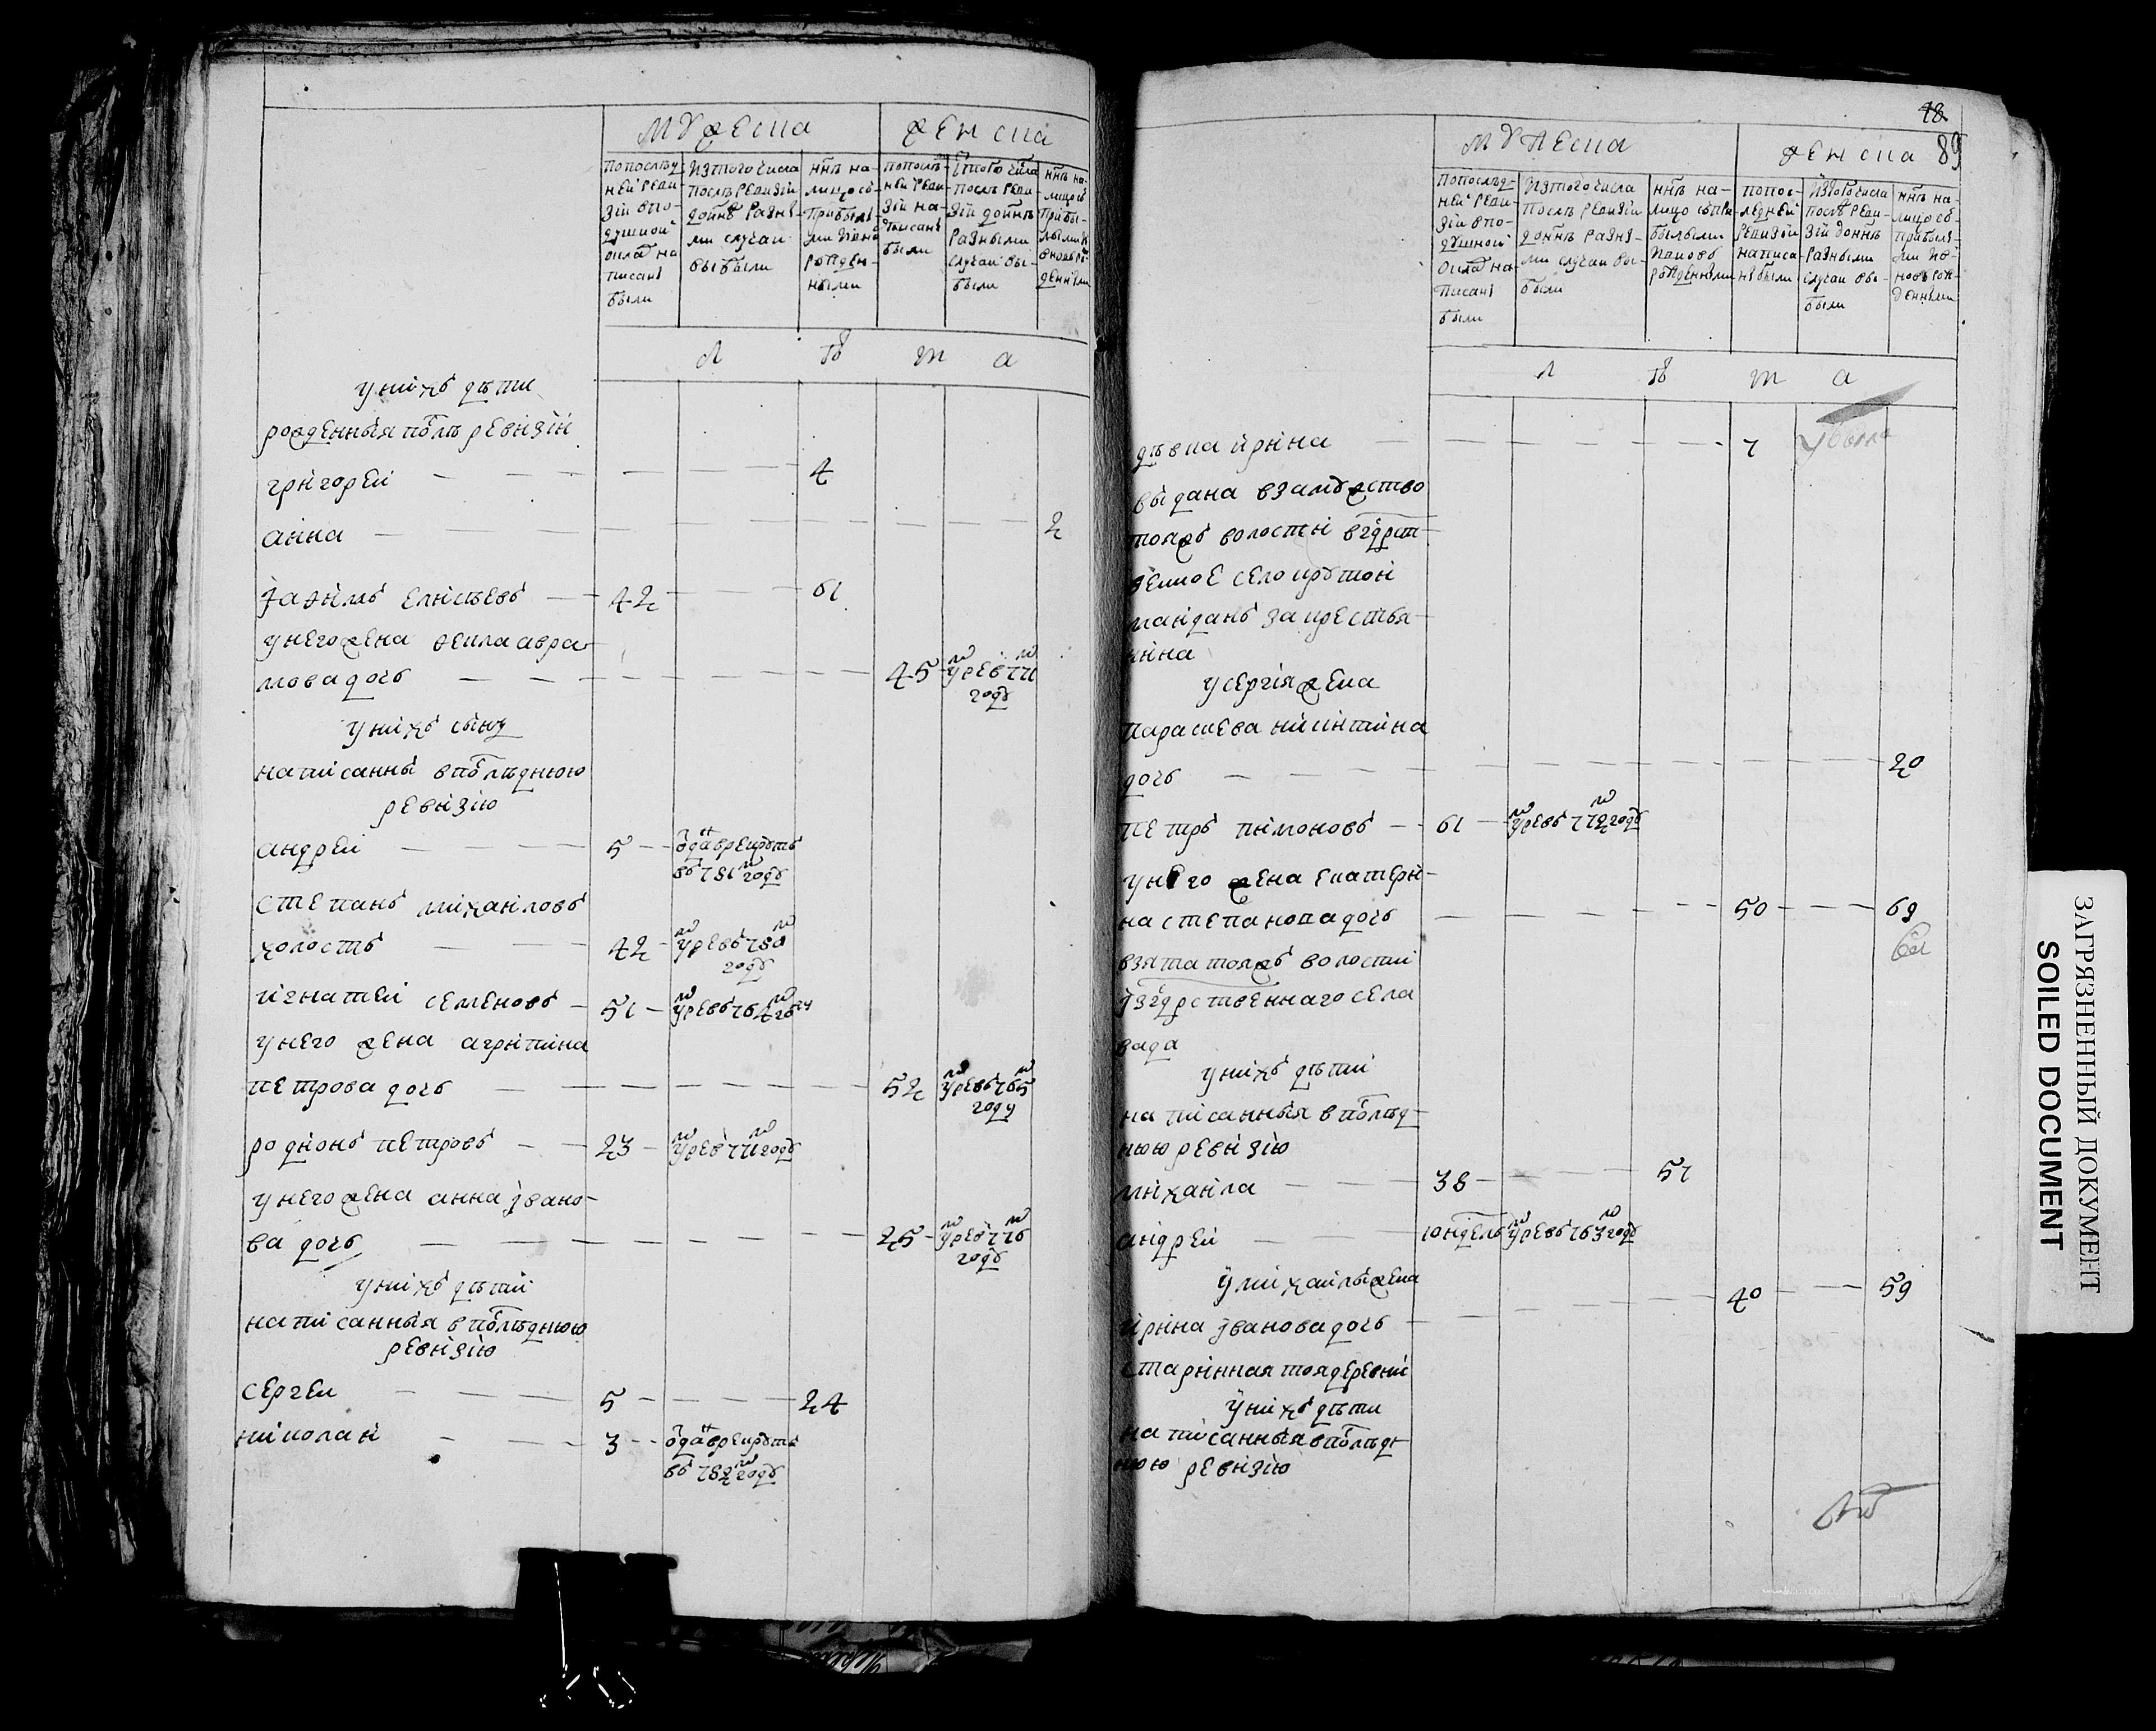 мужеска женска
попослѣдней ревизіи вподушной окладъ написаны были
изтого числа послѣ ревизіи доннѣ разными случаи выбыли
ннѣ налицо съ прибылыми и вновь рожденными
попослѣдней ревизіи написаны были
изтого числа послѣ ревизіи доннѣ разными случаи выбыли
ннѣ налицо съ прибылыми и вновь рожденными
л ѣ т а
у нихъ дѣти
рожденныя послѣ ревизіи
григорей 4
анна 2
якимъ елисѣевъ 42 61
унего жена фекла авра
мова дочь 45 умре в 771 году
у нихъ сынъ
написанны впослѣднюю
ревизію
андрей 5 отдан врекруты
въ 781 году
степанъ михаиловъ
холостъ 42 умре въ 780
году
игнатей семеновъ 51 умре въ 764 году
унего жена агрипина
петрова дочь 52 умре въ 765
году
родионъ петровъ 23 умре в 771 году
унего жена анна ивано
ва дочь 25 умре в 776
году
у нихъ дѣти
написанныя впослѣднюю
ревизію
сергеи 5 24
николаи 3 отдан врекруты
въ 782 году
48
89
мужеска женска
попослѣдней ревизіи вподушной окладъ написаны были
изтого числа послѣ ревизіи доннѣ разными случаи выбыли
ннѣ налицо съ прибылыми и вновь рожденными
попослѣдней ревизіи написаны были
изтого числа послѣ ревизіи доннѣ разными случаи выбыли
ннѣ налицо съ прибылыми и вновь рожденными
л ѣ т а
дѣвка ирина 7
выдана взамужство
тояжъ волости вгдрст
веное село крутои
маиданъ за крестья
нина
у сергія жена
парасковя никитина
дочь 20
петръ пимоновъ 61 умре въ 772 году
унего жена екатери
на степанова дочь 50 69
взята тояжъ волости
изгдрственнаго села
вада
у нихъ дѣти
написанныя впослѣд
нюю ревизію
михаила 38 57
андрей 10 недель умре въ 763 году
у михаилы жена
ирина иванова дочь 40 59
старинная тоя деревни
у нихъ дѣти
написанныя впослѣд
нюю ревизію
ЗАГРЯЗНЕННЫЙ ДОКУМЕНТ
SOILED DOCUMENT